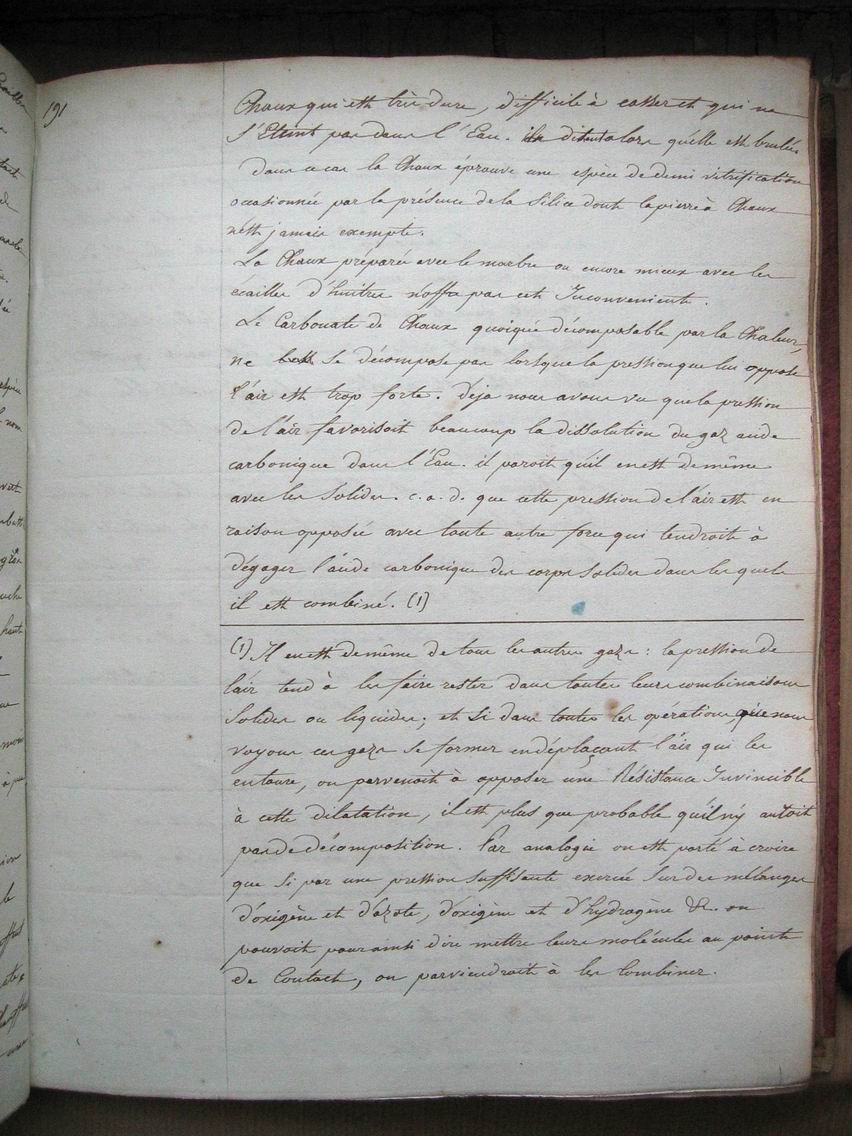 191
Chaux qui est très dure, difficile à casser et qui ne
s'Eteint pas dans l'Eau. ils disent alors qu'elle est brulée
Dans ce cas la Chaux éprouve une espèce de demi vitrification
occasionnée par la présence de la Silice dont la pierre à Chaux
n'est jamais exempte.
La Chaux préparée avec le marbre ou encore mieux avec les
ecailles d'huitres n'offre pas cet Inconvenient.
Le Carbonate de Chaux quoique décomposable par la Chaleur,
ne se décompose pas lorsque la pression que lui oppose
l'air est trop forte. Déja nous avons vu que la pression
de l'air favorisoit beaucoup la dissolution du gaz acide
carbonique dans l'Eau. il paroit qu'il en est de même
avec les solides. c. a. d. que cette pression de l'air est en
raison opposée avec toute autre force qui tendroit à
dégager l'acide carbonique des corps solides dans lesquels
il est combiné. (1)
(1) Il en est de même de tous les autres gazs : la pression de
l'air tend à les faire rester dans toutes leurs combinaisons
solides ou liquides; et si dans toutes les opérations, que nous
voyons ces gazs se former en déplaçant l'air qui les
entoure, on parvenoit à opposer une Résistance Invincible
à cette dilatation, il est plus que probable qu'il n'y auroit
pas de décomposition. Par analogie on est porté à croire
que si par une pression suffisante exercée sur des mélanges
d'oxigène et d'azote, d'oxigène et d'hydrogène &c. on
pouvoit pour ainsi dire mettre leurs molécules au point
de Contact, on parviendroit à les Combiner.